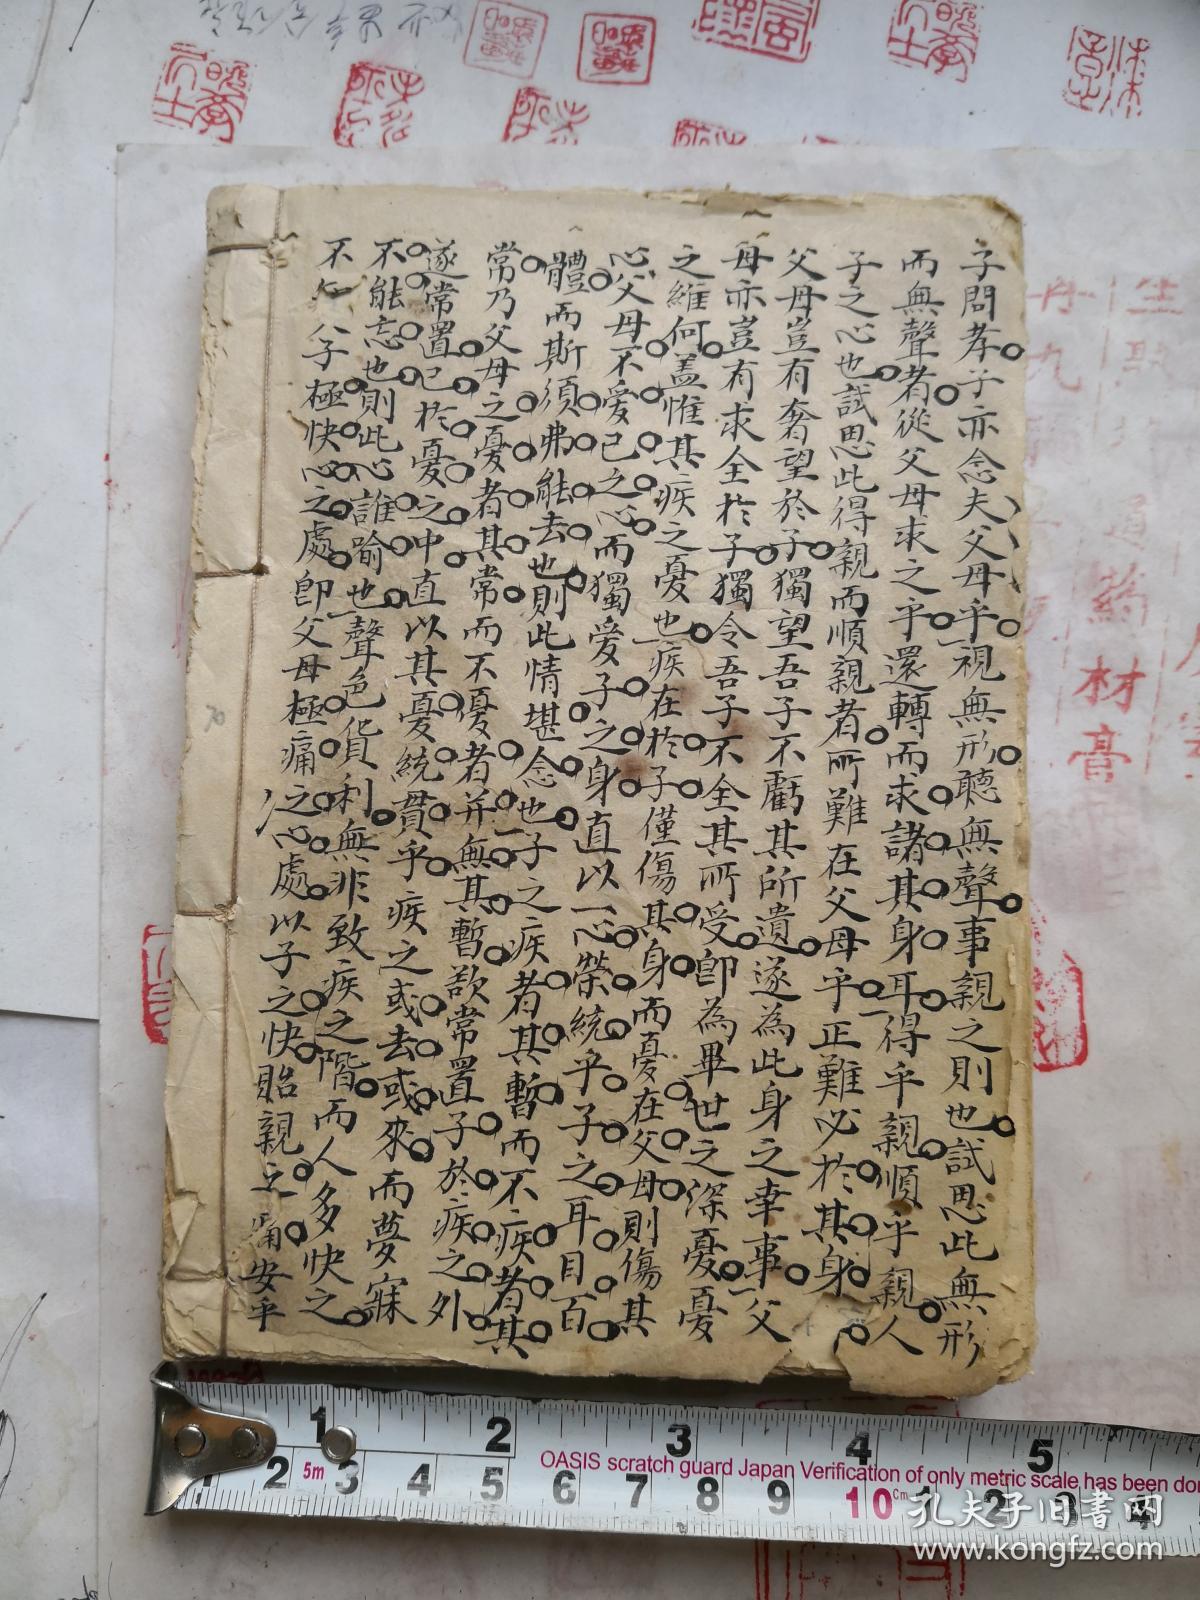 子問孝子亦念夫父母乎視無形聽無聲事親之則也試思此無形
而無聲者從父母求之乎還轉而求諸其身耳得乎親順乎親人
子之心也試思此得親而順親者所難在父母乎正難必於其身
父母豈有奢望於子獨望吾子不虧其所遺遂為此身之幸事父
母亦豈有求全於子獨令吾子不全其所受即為畢世之深憂憂
之維何蓋惟其疾之憂也疾在於子僅傷其身而憂在父母則傷其
心父母不愛己之心而獨愛子之身直以一心縈統乎子之耳目百
體而斯須弗能去也則此情堪念也子之疾者其暫而不疾者其
常乃父母之憂者其常而不憂者並無其暫欲常置子於疾之外
遂常置己於憂之中直以其憂統貫乎疾之或去或來而夢寐
不能忘也則此心誰喻也聲色貨利無非致疾之階而人多快之
不知人子極快心之處即父母極痛心之處以子之快貽親之痛安乎
OASIS scratch guard Japan Verification of only metric scale has been don
1 2 3 4 5
1 2 5m 3 4 5 6 7 8 9 10 Cm 1 2 3 4
道葯材膏
孔夫子旧书网
www.kongfz.com